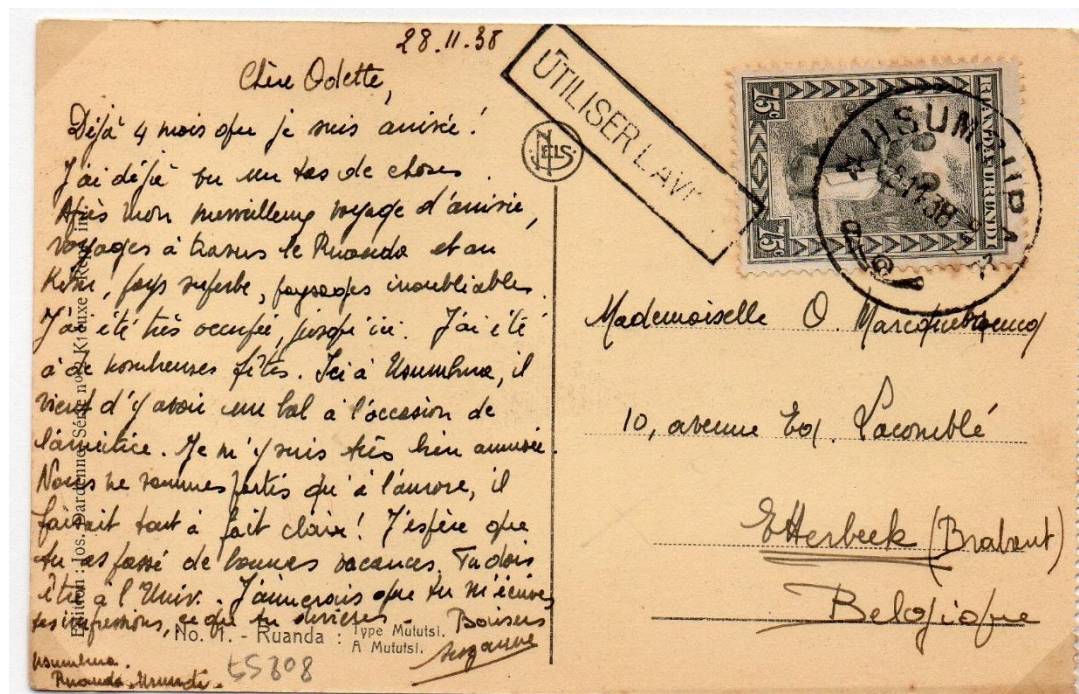 28.11.38
Chère Odette,
Déjà 4 mois que je suis arrivée!
J'ai déjà vu un tas de choses.
Après mon merveilleux voyage d'arrivée,
voyages à travers le Ruanda et au
Kivu, pays superbe, paysages inoubliables.
J'ai été très occupée, jusqu'ici. J'ai été
à de nombreuses fêtes. Ici à Usumbura, il
vient d'y avoir un bal à l'occasion de
l'armistice. Je m'y suis très bien amusée.
Nous ne sommes partis qu'à l'aurore, il
faisait tout à fait claire! J'espère que
tu as passé de bonnes vacances. Tu dois
être à l'Univ. J'aimerais que tu m'écrives
tes impressions, ce que tu deviens. Baisers
Suzanne
Usumbura.
Ruanda-Urundi.
55808
Edition : Jos. Dardenne Série no
No. 1. - Ruanda : Type Mututsi.
A Mututsi.
NELS
UTILISER L'AVI
75c
RUANDA URUNDI
75c
USUMBURA
Mademoiselle O.
10, avenue Ed. Lacomblé
Etterbeek (Brabant)
Belgique